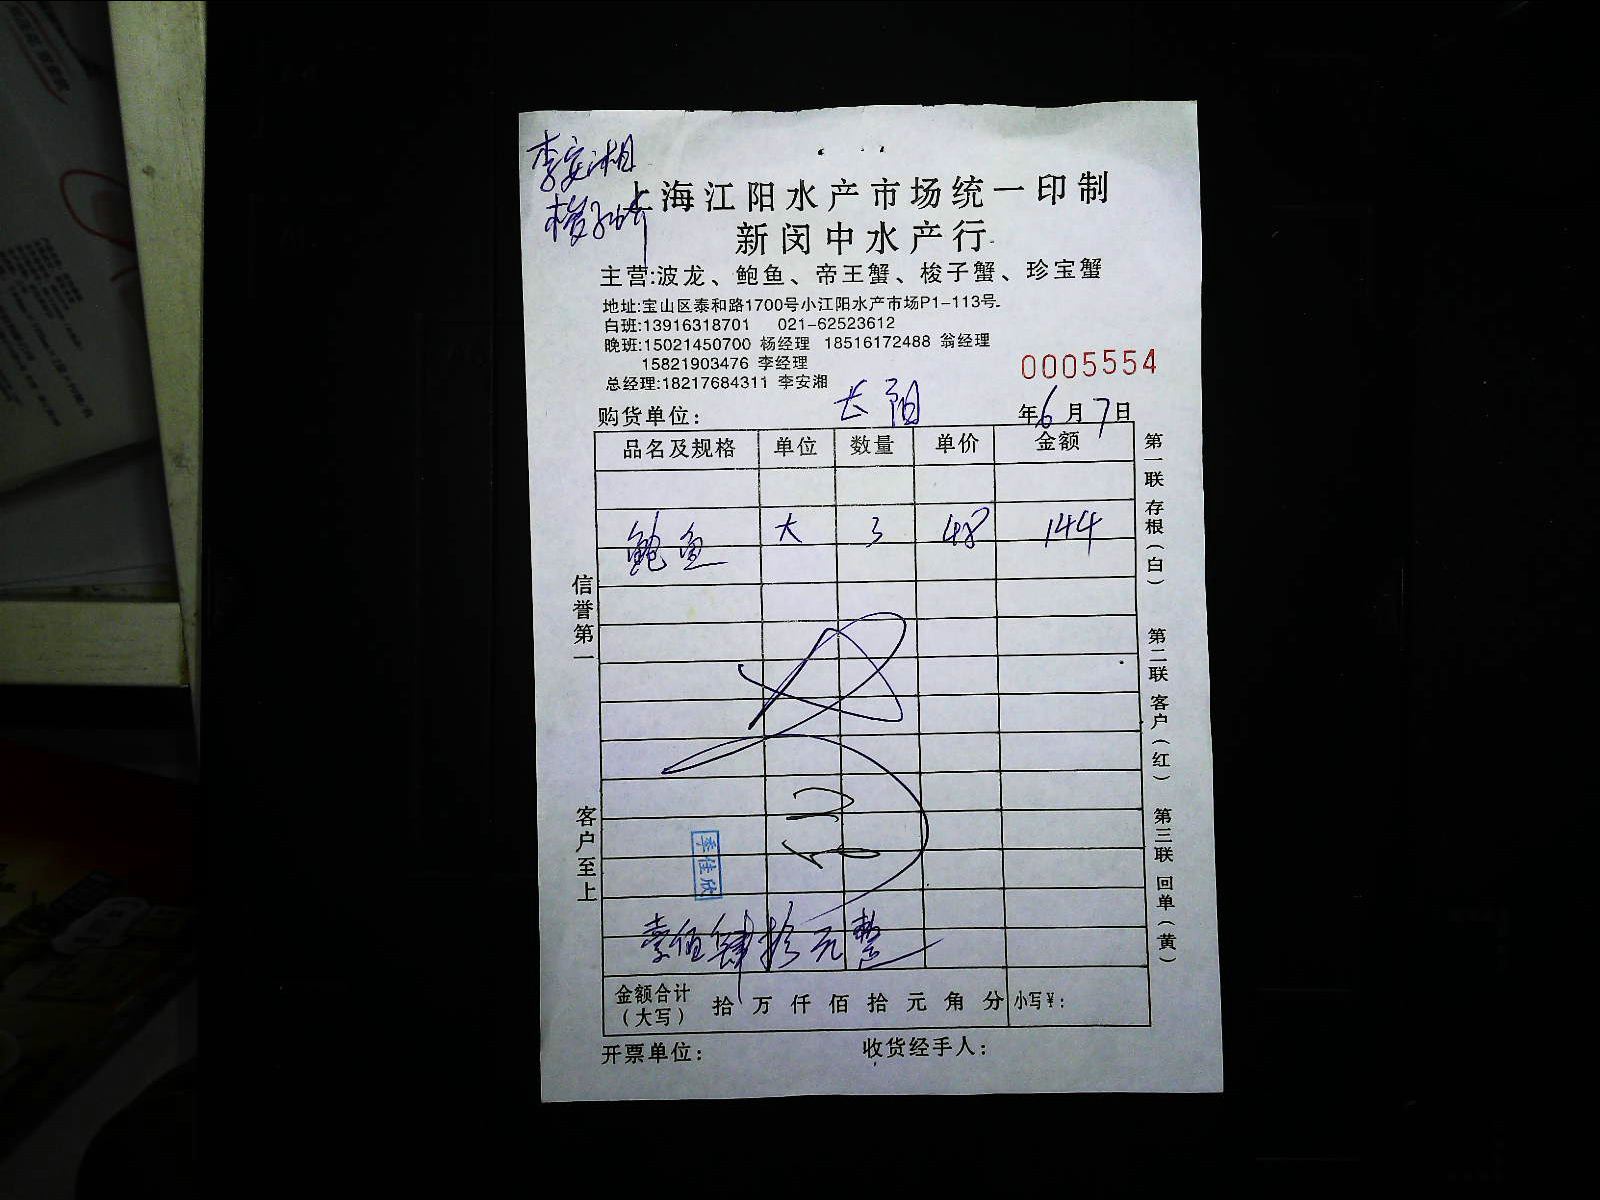 李安湘
梭子蟹
上海江阳水产市场统一印制
新闵中水产行
主营:波龙、鲍鱼、帝王蟹、梭子蟹、珍宝蟹
地址:宝山区泰和路1700号小江阳水产市场P1-113号
白班:13916318701 021-62523612
晚班:15021450700 杨经理 18516172488 翁经理
15821903476 李经理
总经理:18217684311 李安湘
0005554
购货单位: 长阳 年6月7日
品名及规格 单位 数量 单价 金额
鲍鱼 大 3 48 144
信誉第一
客户至上
第一联 存根(白)
第二联 客户(红)
第三联 回单(黄)
季佳欣
壹佰肆拾元整
金额合计(大写) 拾 万 仟 佰 拾 元 角 分 小写¥:
开票单位: 收货经手人: